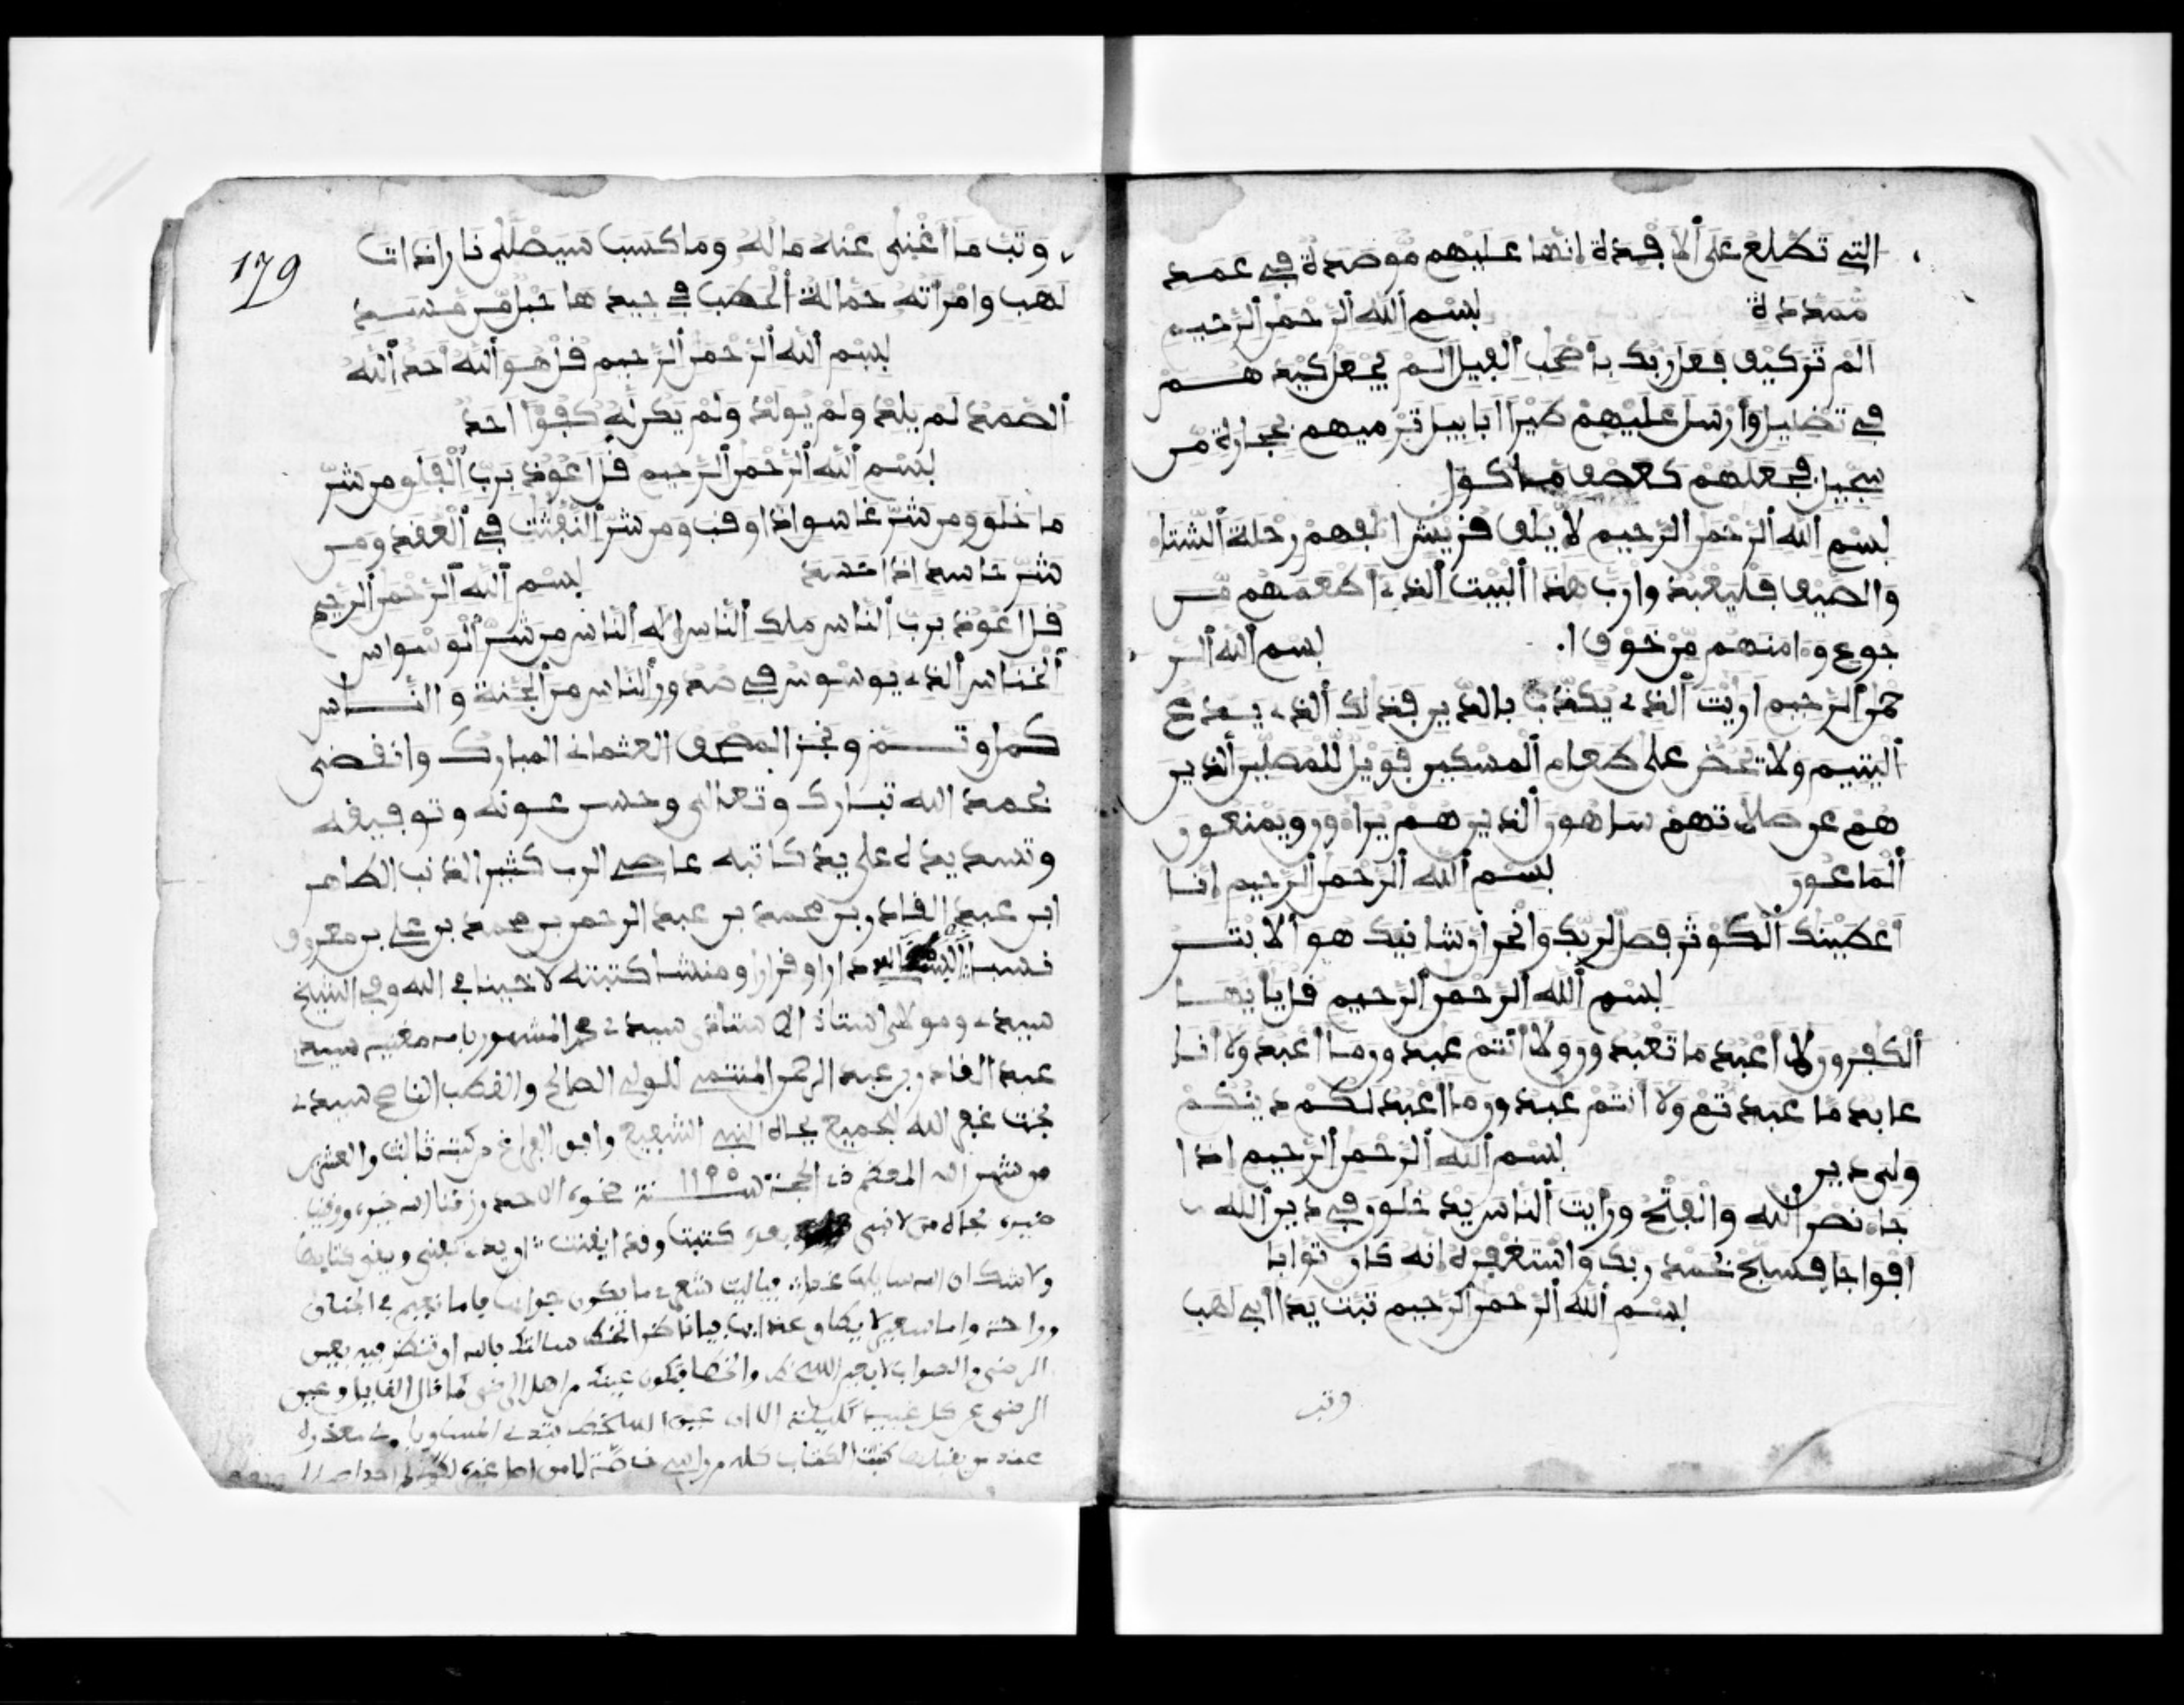 التي تطلع على الافئدة انها عليهم موصدة في عمد
ممددة بسم الله الرحمن الرحيم
الم تر كيف فعل ربك باصحب الفيل الم يجعل كيدهم
في تضليل وارسل عليهم طيرا ابابيل ترميهم بحجارة من
سجيل فجعلهم كعصف ماكول
بسم الله الرحمن الرحيم لايلف قريش الفهم رحلة الشتاء
والصيف فليعبدوا رب هذا البيت الذي اطعمهم من
جوع وءامنهم من خوف بسم الله الر
حمن الرحيم اريت الذي يكذب بالدين فذلك الذي يدع
اليتيم ولا يحض على طعام المسكين فويل للمصلين الذين
هم عن صلاتهم ساهون الذين هم يراءون ويمنعون
الماعون بسم الله الرحمن الرحيم انا
اعطينك الكوثر فصل لربك وانحر ان شانيك هو الابتر
بسم الله الرحمن الرحيم قل يايها
الكفرون لا اعبد ما تعبدون ولا انتم عبدون ما اعبد ولا انا
عابد ما عبدتم ولا انتم عبدون ما اعبد لكم دينكم
ولي دين بسم الله الرحمن الرحيم اذا
جاء نصر الله والفتح ورايت الناس يدخلون في دين الله
افواجا فسبح بحمد ربك واستغفره انه كان توابا
بسم الله الرحمن الرحيم تبت يدا ابي لهب
وتب
179
وتب ما اغنى عنه ماله وما كسب سيصلى نارا ذات
لهب وامراته حمالة الحطب في جيدها حبل من مسد
بسم الله الرحمن الرحيم قل هو الله احد الله
الصمد لم يلد ولم يولد ولم يكن له كفوا احد
بسم الله الرحمن الرحيم قل اعوذ برب الفلق من شر
ما خلق ومن شر غاسق اذا وقب ومن شر النفثت في العقد ومن
شر حاسد اذا حسد بسم الله الرحمن الرحيم
قل اعوذ برب الناس ملك الناس اله الناس من شر الوسواس
الخناس الذي يوسوس في صدور الناس من الجنة والناس
كمل وتم ونجز المصحف العثماني المبارك وانقضى
بحمد الله تبارك وتعالى وحسن عونه وتوفيقه
وتسديده على يد كاتبه عاصي الرب كثير الذنب الطاهر
ابن عبد القادر بن محمد بن عبد الرحمن بن محمد بن علي بن معروف
نسبا دارا وقرارا ومنشا كتبته لاخينا في الله وفي الشيخ
سيدي ومولاي استاذ الاستاذ سيدي محمد المشهور باسم سيد
عبد القادر بن عبد الرحمن المنتمي للولي الصالح والقطب سيدي
غفر الله للجميع بجاه النبي الشفيع وافق الفراغ من كتبه ثالث والعشرين
من شهر الله المعظم ذي الحجة سنة 1195 الاحد رزقنا الله خيره ووقينا
كتبت وقد ايقنت ان يدي تفنى ويبقى كتابها
ولا شك ان الله سايلها غدا فياليت شعري ما يكون جوابها فاما نعيم في الجنان
وراحة واما سعير لا يطاق عذابها فيا ناظر الخط سالتك بالله ان تنظر فيه بعين
الرضى والصواب من اهل الرضى كما قال القايل وعين
الرضى عن كل عيب كليلة الا ان عين السخط تبدي المساويا